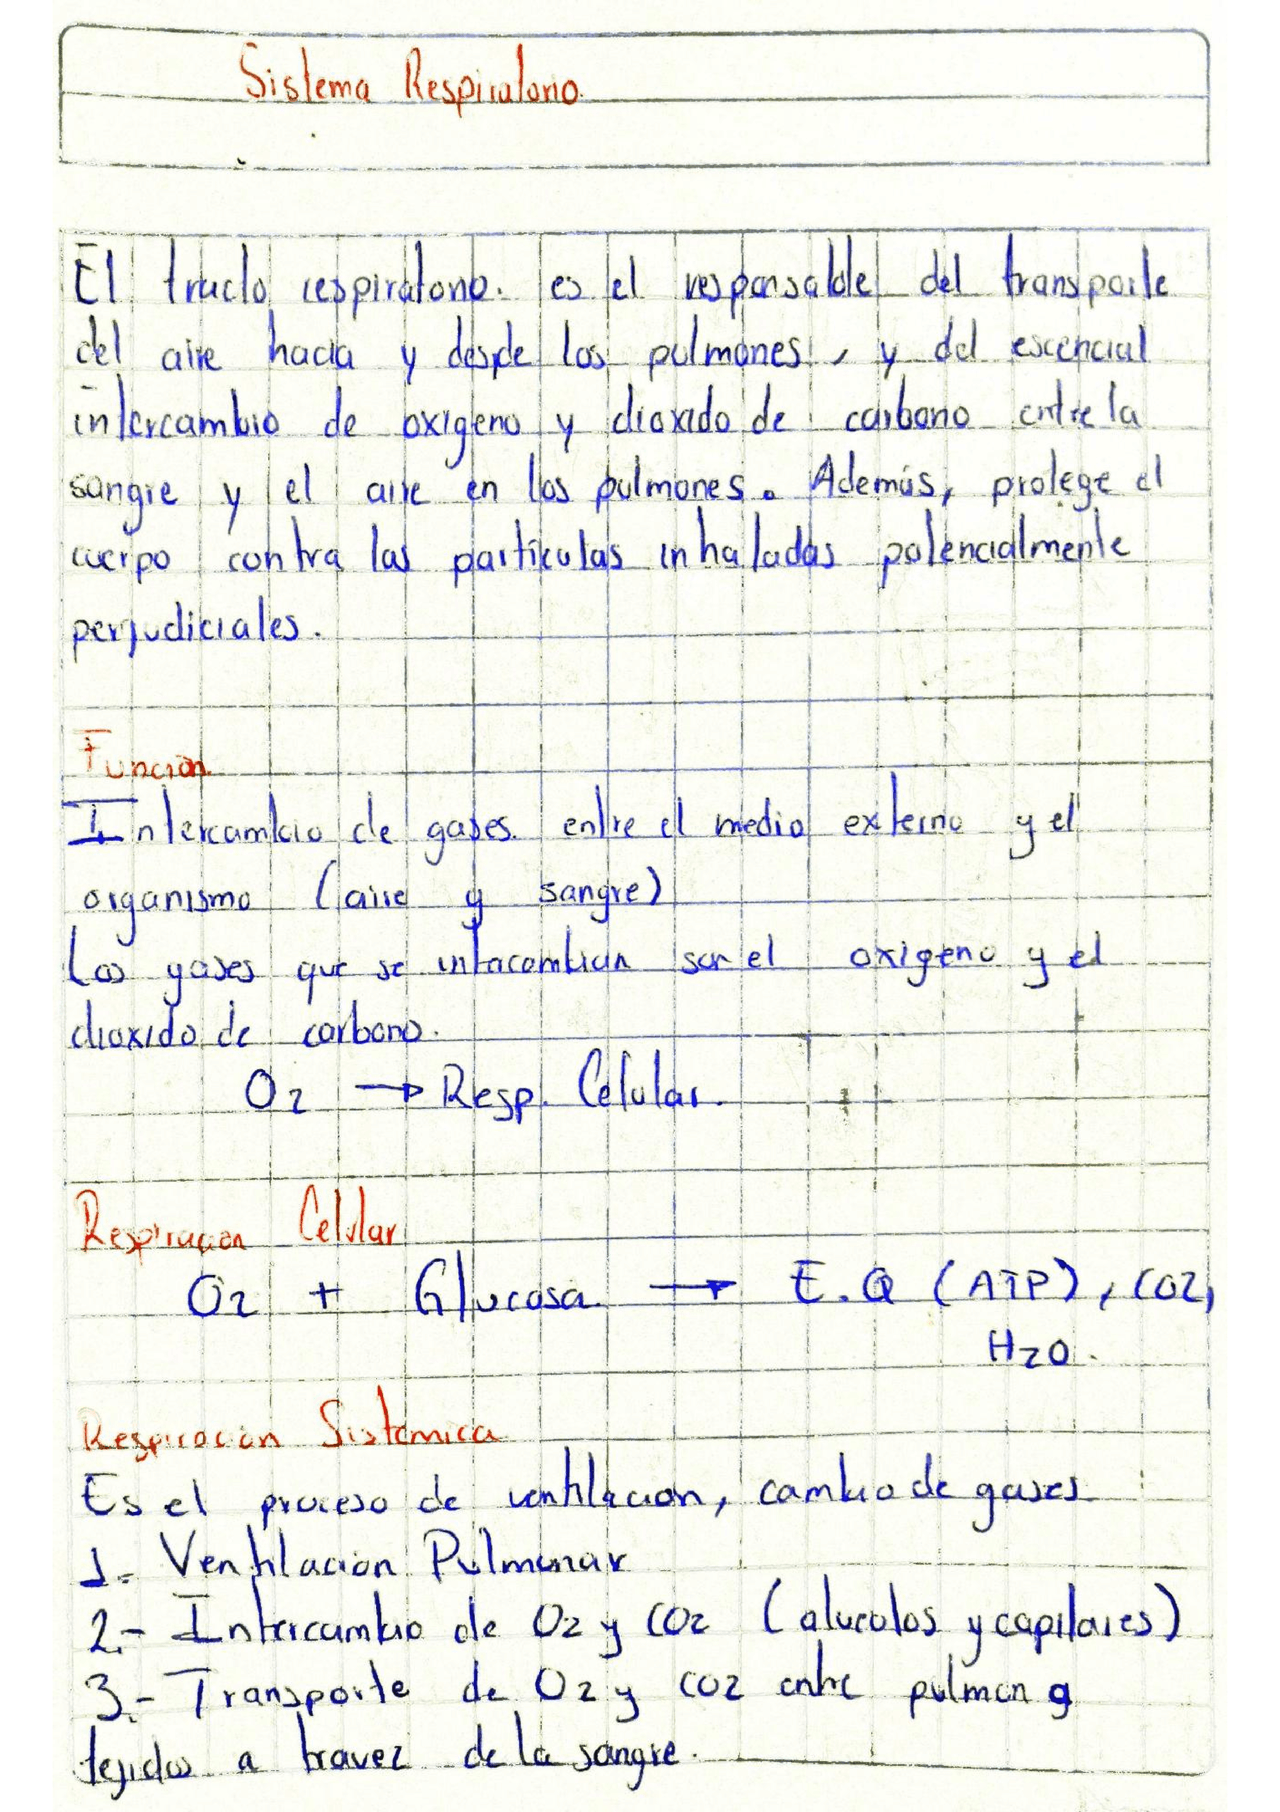 Sistema Respiratorio.
El tracto respiratorio. es el responsable del transporte
del aire hacia y desde los pulmones, y del escencial
intercambio de oxigeno y dioxido de carbono entre la
sangre y el aire en los pulmones. Además, protege el
cuerpo contra las partículas inhaladas potencialmente
perjudiciales.
Función
Intercambio de gases entre el medio externo y el
organismo (aire y sangre)
Los gases que se intercambian son el oxigeno y el
dioxido de carbono.
O2 → Resp. Celular.
Respiracion Celular
O2 + Glucosa → E.Q (ATP), CO2,
H2O.
Respiracion Sistemica
Es el proceso de ventilacion, cambio de gases
1.- Ventilacion Pulmonar
2.- Intercambio de O2 y CO2 (alveolos y capilares)
3.- Transporte de O2 y CO2 entre pulmon y
tejidos a travez de la sangre.